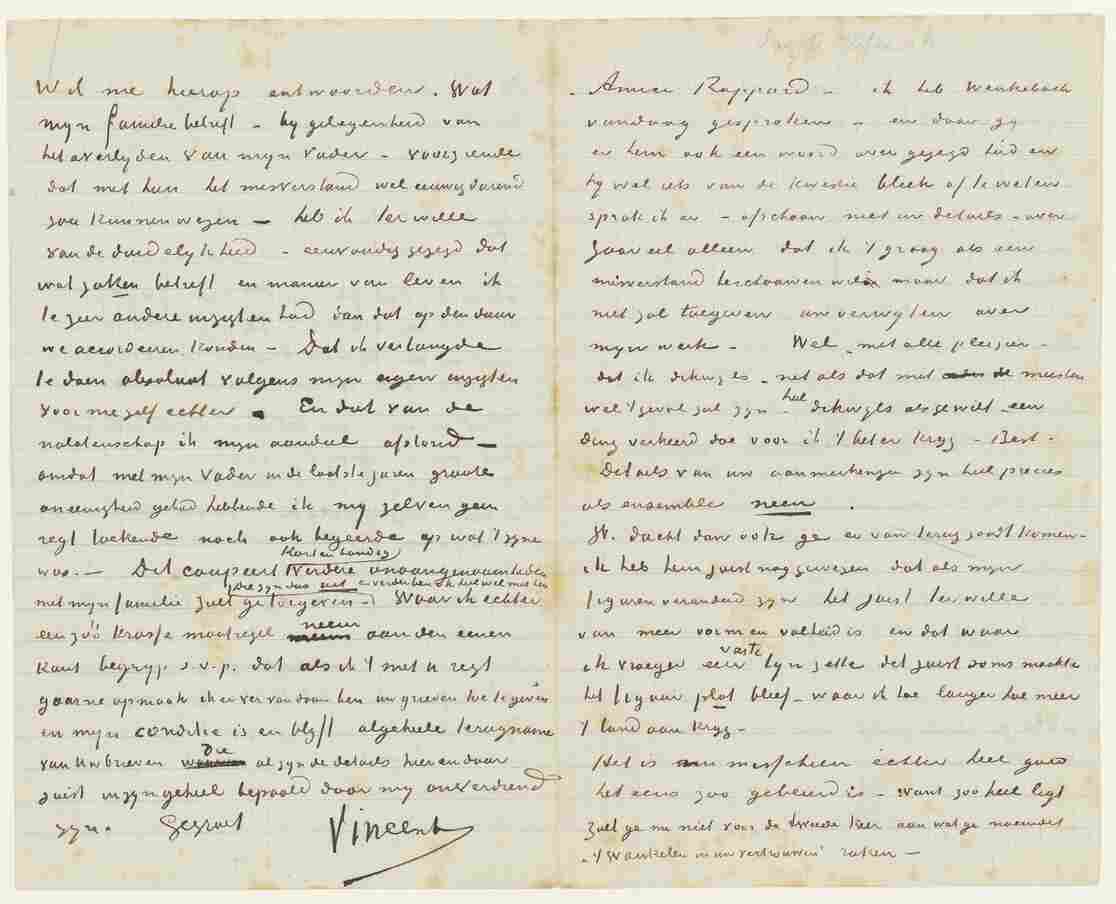 Wil me hierop antwoorden. Wat
mijn familie betreft – bij gelegenheid van
het overlijden van mijn vader – voorziende
dat met hun het misverstand wel eeuwigdurend
zou kunnen wezen – heb ik ter wille
van de duidelijkheid – eenvoudig gezegd dat
wat zaken betreft en manier van leven ik
te zeer andere inzigten had dan dat op den duur
we accorderen konden – Dat ik verlangde
te doen absoluut volgens mijn eigen inzigten
voor me zelf echter. En dat van de
nalatenschap ik mijn aandeel afstond –
omdat met mijn vader in de laatste jaren groote
oneenigheid gehad hebbende ik mij zelven geen
regt toekende noch ook begeerde op wat 't zijne
was. – Dit coupeert kort en bondig verdere onaangenaamheden
met mijn familie zult ge toegeven – die zijn dus uit Waar ik echter
een zóó krasse maatregel neem aan den eenen
kant begrijp s.v.p. dat als ik 't met u regt
gaarne opmaak ik er ver vandaan ben uw grieven toe te geven
en mijn conditie is en blijft algeheele terugname
van uw brieven die al zijn de details hier en daar
juist in zijn geheel bepaald door mij onverdiend
zijn. Gegroet
Vincent
Amice Rappard – ik heb Wenkebach
vandaag gesproken – en daar gij
er hem ook een woord over gezegd had en
hij wel iets van de kwestie bleek af te weten
sprak ik er – ofschoon niet in details – over
zooveel alleen dat ik 't graag als een
misverstand beschouwen wil maar dat ik
niet zal toegeven uw verwijten over
mijn werk – Wel, met alle pleizier –
dat ik dikwijls – net als dat met meesten
wel 't geval zal zijn – heel dikwijls als ge wilt een
ding verkeerd doe voor ik 't beter krijg – Best.
Details van uw aanmerkingen zijn heel precies
als ensemble neen.
W. dacht dan ook ge er van terug zoudt komen –
ik heb hem juist nog gewezen dat als mijn
figuren veranderd zijn het juist ter wille
van meer vorm en volheid is en dat waar
ik vroeger een vaste lijn zette dit juist soms maakte
het figuur plat bleef – waar ik hoe langer hoe meer
't land aan krijg –
Het is misschien echter heel goed
het eens zoo gebeurd is – want zoo heel ligt
zult ge nu niet voor de tweede keer aan wat ge noemdet
„'t wankelen in uw vertrouwen” raken –